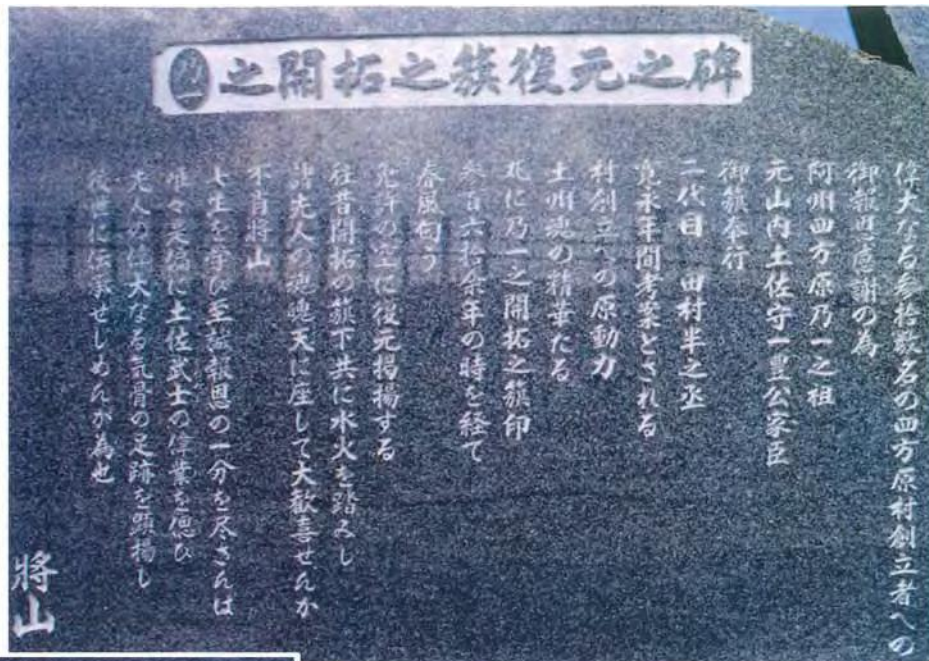 乃一之開拓之籏復元之碑
偉大なる参拾数名の四方原村創立者への
御報恩感謝の為
阿州四方原乃一之祖
元山内土佐守一豊公家臣
御籏奉行
二代目 田村半之丞
寛永年間考案とされる
村創立への原動力
土州魂の精華たる
此に乃一之開拓之籏印
参百六拾余年の時を経て
春風匂う
の空に復元掲揚する
往昔開拓の籏下共に水火を踏みし
諸先人の魂天に座して大歓喜せんか
不肖将山
七生を誓ひ至誠報恩の一分を尽さんは
唯々是偏に土佐武士の偉業を偲ひ
先人の偉大なる気骨の足跡を顕揚し
後世に伝承せしめんが為也
將山